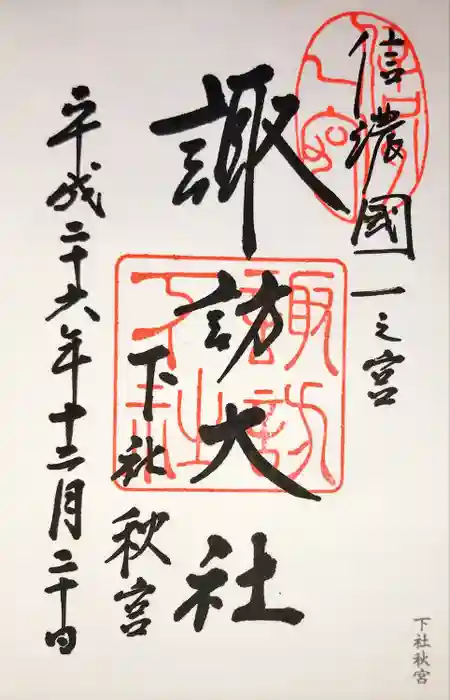 信濃國一之宮
諏訪大社
下社秋宮
平成二十六年十二月二十日
諏訪
下社
下社秋宮